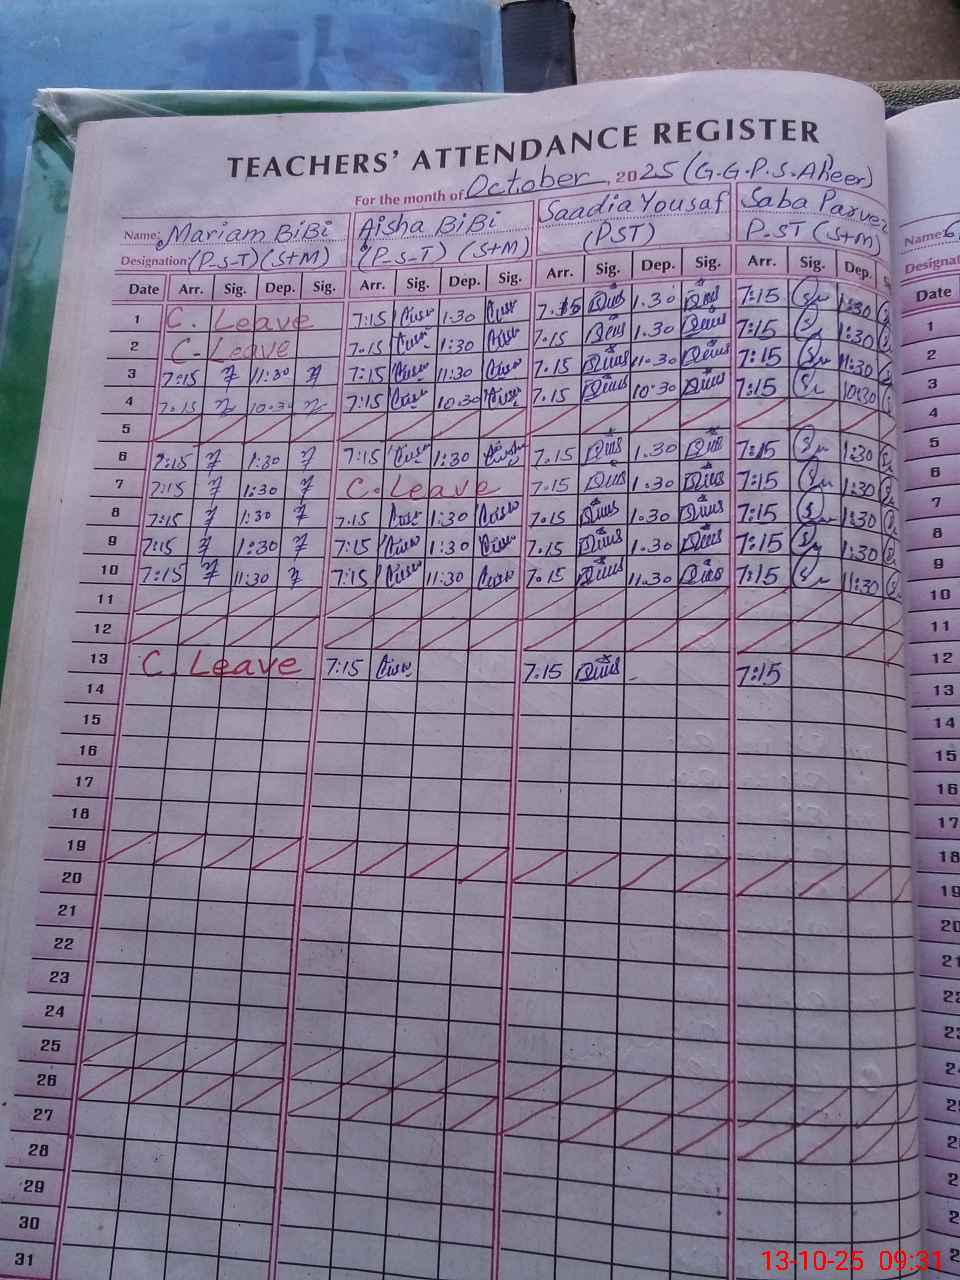 TEACHERS' ATTENDANCE REGISTER
For the month of October, 2025 (G.G.P.S.Aheer)
Name: Mariam BiBi Aisha BiBi Saadia Yousaf Saba Parvez
Designation: (P.S-T) (S+M) (P.S-T) (S+M) (PST) P.ST (S+M)
Date Arr. Sig. Dep. Sig. Arr. Sig. Dep. Sig. Arr. Sig. Dep. Sig. Arr. Sig. Dep.
1 C. Leave 7:15 1:30 7.15 1.30 7:15 1:30
2 C. Leave 7.15 1:30 7.15 1.30 7:15 1:30
3 7:15 11:30 7:15 11:30 7.15 11.30 7:15 11:30
4 7.15 10.30 7:15 10:30 7.15 10.30 7:15 10:30
5
6 7:15 1:30 7:15 1:30 7.15 1.30 7:15 1:30
7 7:15 1:30 C. Leave 7.15 1.30 7:15 1:30
8 7:15 1:30 7.15 1:30 7.15 1.30 7:15 1:30
9 7:15 1:30 7:15 1:30 7.15 1.30 7:15 1:30
10 7:15 11:30 7:15 11:30 7.15 11.30 7:15 11:30
11
12
13 C. Leave 7:15 7.15 7:15
14
15
16
17
18
19
20
21
22
23
24
25
26
27
28
29
30
31
Name:
Designat
Date
1
2
3
4
5
6
7
8
9
10
11
12
13
14
15
16
17
18
19
20
21
22
13-10-25 09:31